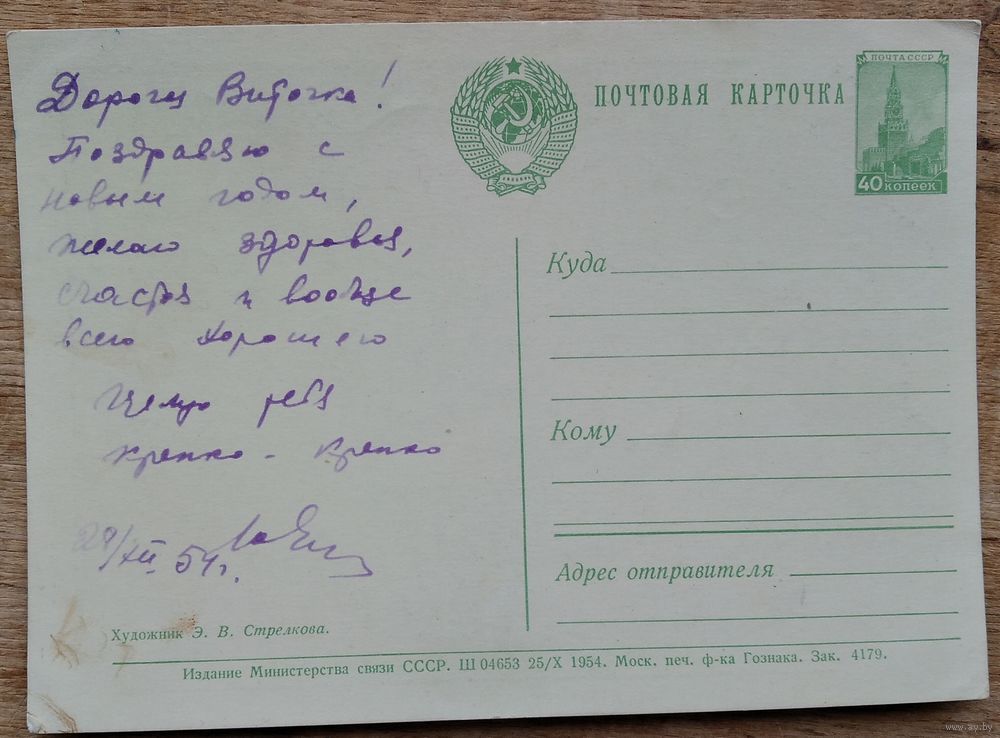 Дорогая Виточка!
Поздравляю с
новым годом,
желаю здоровья,
счастья и вообще
всего хорошего
Целую тебя
крепко - крепко
29/XII 54 г.
Художник Э. В. Стрелкова.
ПОЧТОВАЯ КАРТОЧКА
ПОЧТА СССР
40 КОПЕЕК
Куда
Кому
Адрес отправителя
Издание Министерства связи СССР. Ш 04653 25/X 1954. Моск. печ. ф-ка Гознака. Зак. 4179.
www.ay.by